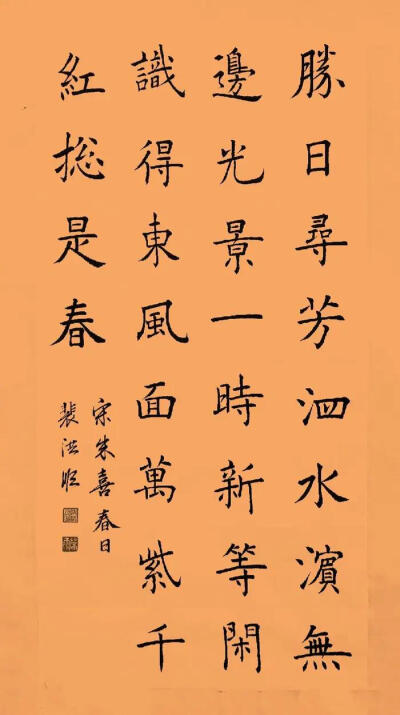 勝日尋芳泗水濱無
邊光景一時新等閑
識得東風面萬紫千
紅捴是春
宋朱喜春日
裴洪